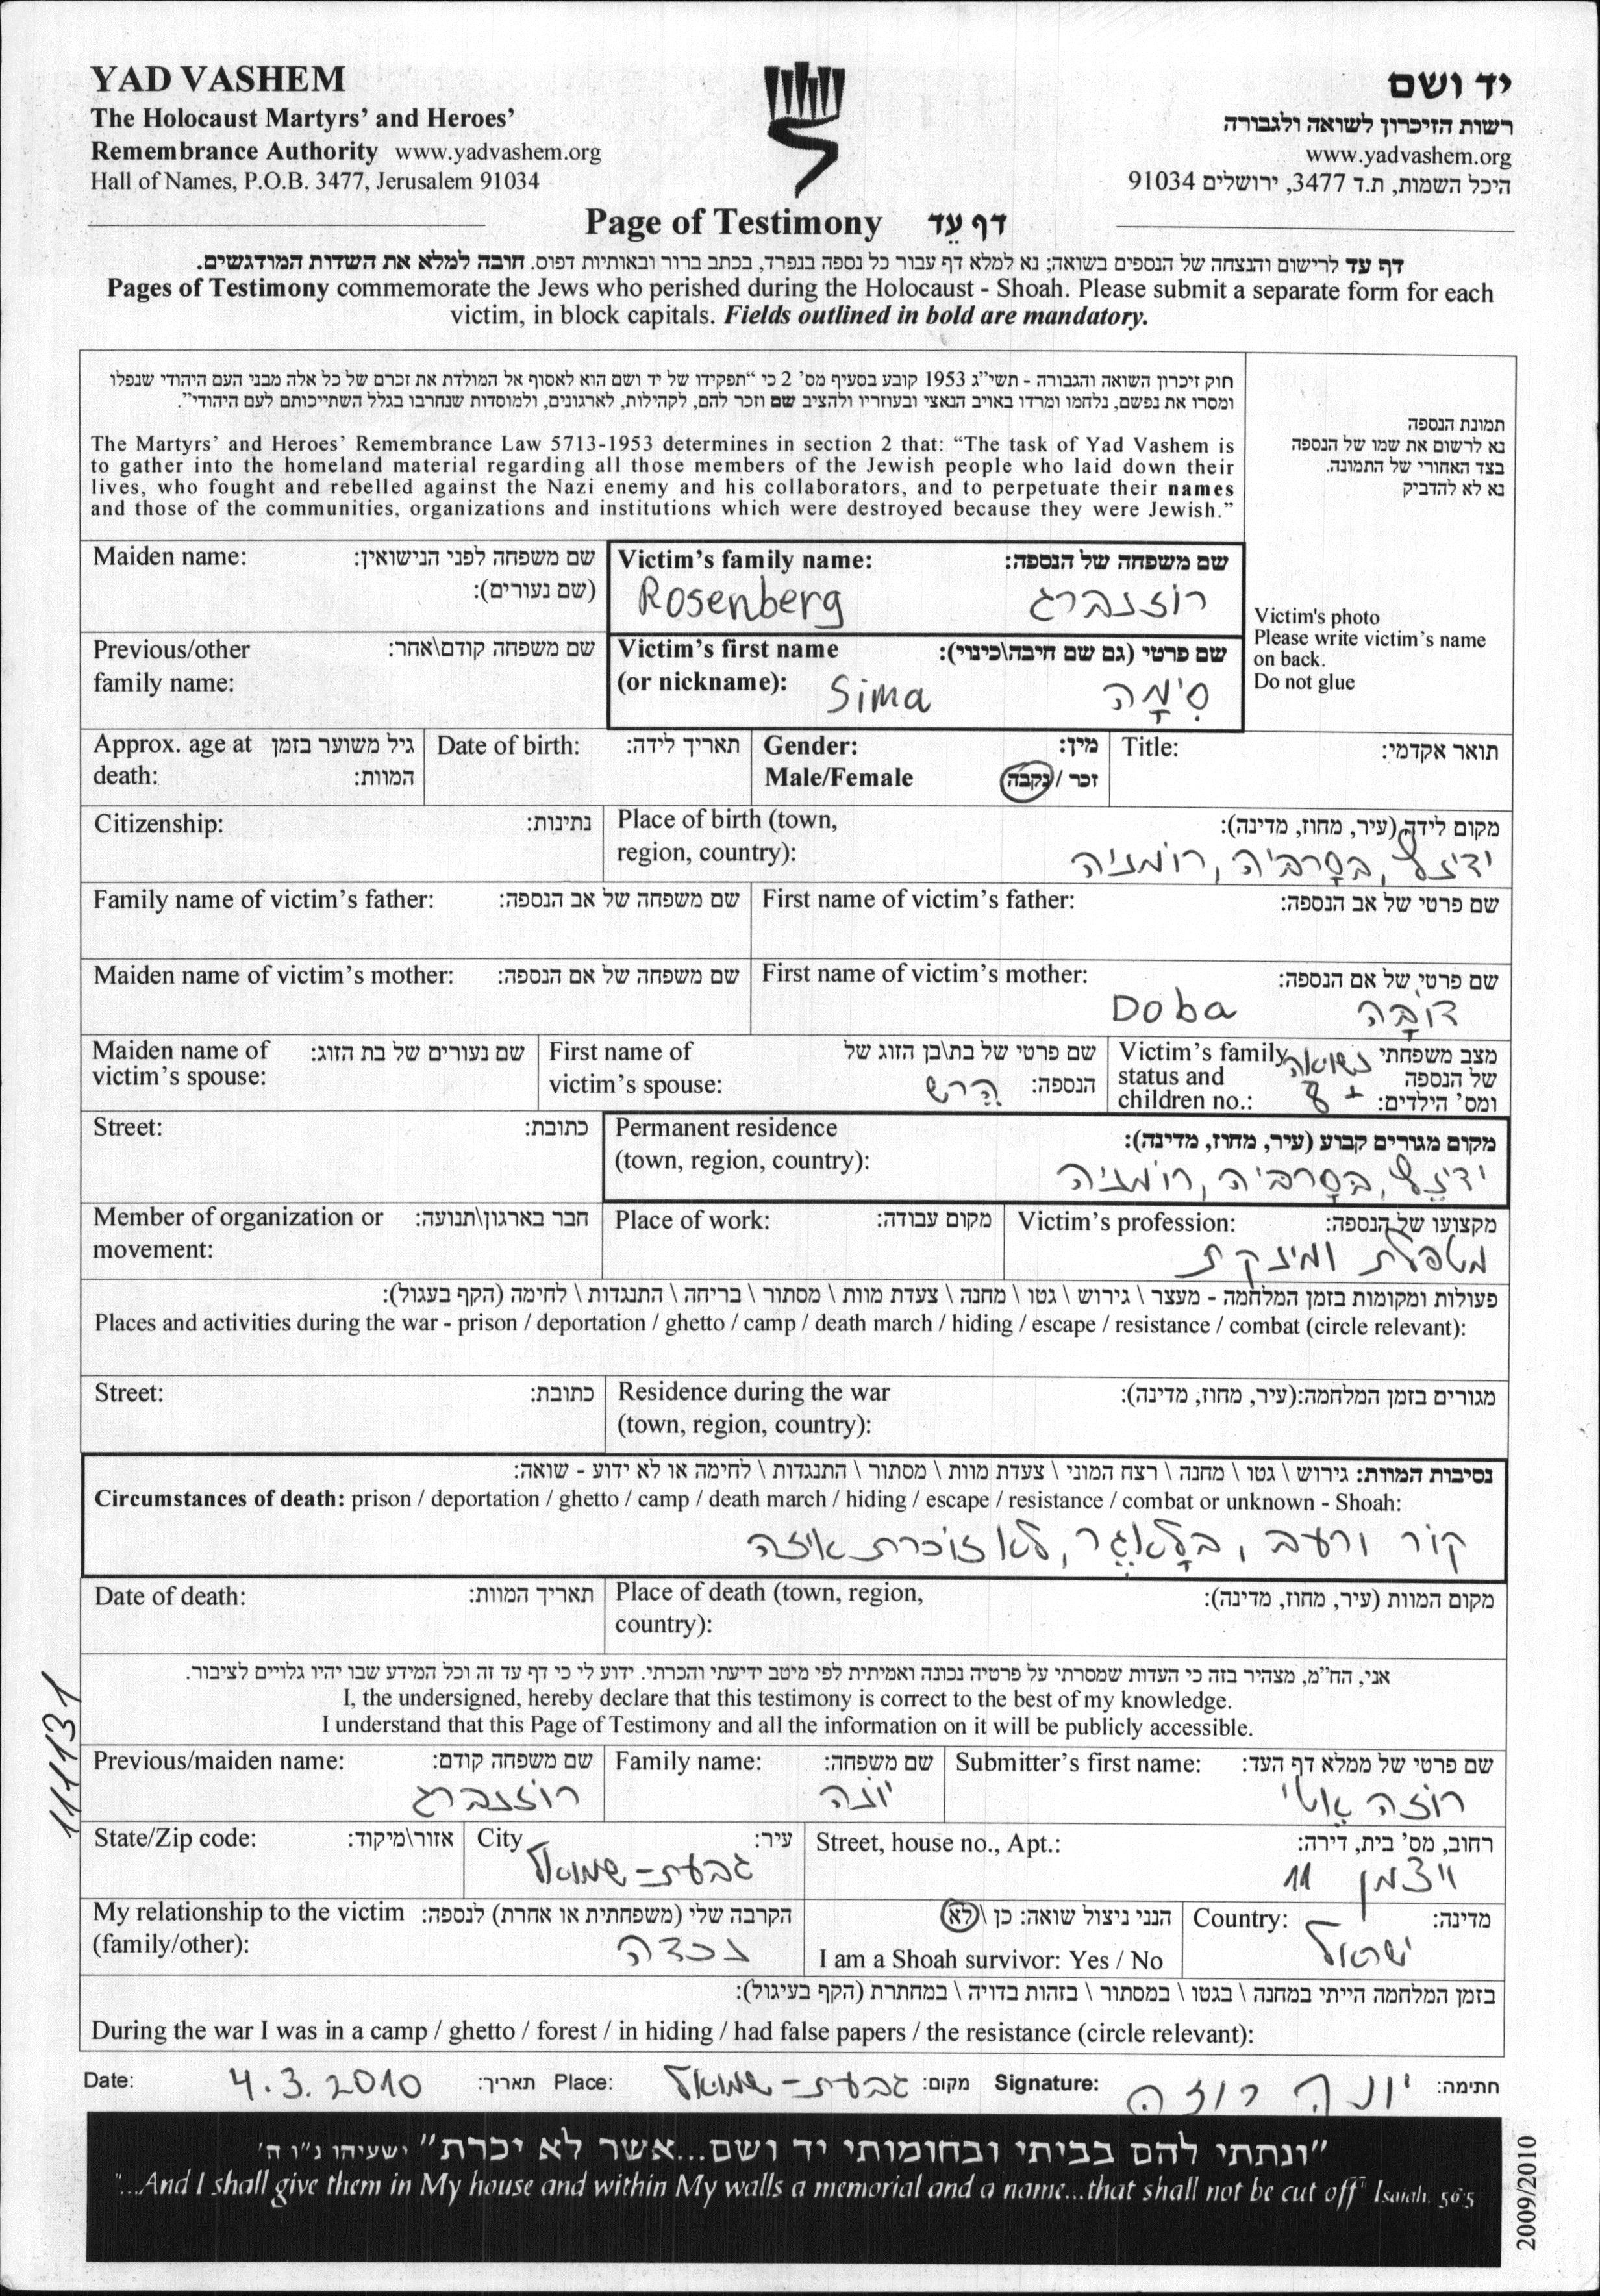 YAD VASHEM
The Holocaust Martyrs' and Heroes'
Remembrance Authority www.yadvashem.org
Hall of Names, P.O.B. 3477, Jerusalem 91034
יד ושם
רשות הזיכרון לשואה ולגבורה
www.yadvashem.org
היכל השמות, ת.ד 3477, ירושלים 91034
Page of Testimony דף עֵד
דף עד לרישום והנצחה של הנספים בשואה; נא למלא דף עבור כל נספה בנפרד, בכתב ברור ובאותיות דפוס. חובה למלא את השדות המודגשים.
Pages of Testimony commemorate the Jews who perished during the Holocaust - Shoah. Please submit a separate form for each
victim, in block capitals. Fields outlined in bold are mandatory.
חוק זיכרון השואה והגבורה - תשי"ג 1953 קובע בסעיף מס' 2 כי "תפקידו של יד ושם הוא לאסוף אל המולדת את זכרם של כל אלה מבני העם היהודי שנפלו
ומסרו את נפשם, נלחמו ומרדו באויב הנאצי ובעוזריו ולהציב שם וזכר להם, לקהילות, לארגונים, ולמוסדות שנחרבו בגלל השתייכותם לעם היהודי".
The Martyrs' and Heroes' Remembrance Law 5713-1953 determines in section 2 that: "The task of Yad Vashem is
to gather into the homeland material regarding all those members of the Jewish people who laid down their
lives, who fought and rebelled against the Nazi enemy and his collaborators, and to perpetuate their names
and those of the communities, organizations and institutions which were destroyed because they were Jewish."
תמונת הנספה
נא לרשום את שמו של הנספה
בצד האחורי של התמונה.
נא לא להדביק
Victim's photo
Please write victim's name
on back.
Do not glue
Maiden name: שם משפחה לפני הנישואין:
(שם נעורים):
Victim's family name: שם משפחה של הנספה:
Rosenberg רוזנברג
Previous/other שם משפחה קודם\אחר:
family name:
Victim's first name שם פרטי (גם שם חיבה\כינוי):
(or nickname): Sima סִימָה
Approx. age at גיל משוער בזמן
death: המוות:
Date of birth: תאריך לידה:
Gender: מין:
Male/Female זכר / נקבה
Title: תואר אקדמי:
Citizenship: נתינות:
Place of birth (town, מקום לידה (עיר, מחוז, מדינה):
region, country): ידינץ, בסרביה, רומניה
Family name of victim's father: שם משפחה של אב הנספה:
First name of victim's father: שם פרטי של אב הנספה:
Maiden name of victim's mother: שם משפחה של אם הנספה:
First name of victim's mother: שם פרטי של אם הנספה:
Doba דוֹבָּה
Maiden name of שם נעורים של בת הזוג:
victim's spouse:
First name of שם פרטי של בת\בן הזוג של
victim's spouse: הנספה: הֶרש
Victim's family מצב משפחתי נשואה
status and של הנספה
children no.: ומס' הילדים: + 8
Street: כתובת:
Permanent residence מקום מגורים קבוע (עיר, מחוז, מדינה):
(town, region, country): ידינץ, בסרביה, רומניה
Member of organization or חבר בארגון\תנועה:
movement:
Place of work: מקום עבודה:
Victim's profession: מקצועו של הנספה:
מטפלת ומינקת
פעולות ומקומות בזמן המלחמה - מעצר \ גירוש \ גטו \ מחנה \ צעדת מוות \ מסתור \ בריחה \ התנגדות \ לחימה (הקף בעגול):
Places and activities during the war - prison / deportation / ghetto / camp / death march / hiding / escape / resistance / combat (circle relevant):
Street: כתובת:
Residence during the war מגורים בזמן המלחמה:(עיר, מחוז, מדינה):
(town, region, country):
נסיבות המוות: גירוש \ גטו \ מחנה \ רצח המוני \ צעדת מוות \ מסתור \ התנגדות \ לחימה או לא ידוע - שואה:
Circumstances of death: prison / deportation / ghetto / camp / death march / hiding / escape / resistance / combat or unknown - Shoah:
קור ורעב, בלאגר, לא זוכרת איזה
Date of death: תאריך המוות:
Place of death (town, region, מקום המוות (עיר, מחוז, מדינה):
country):
אני, הח"מ, מצהיר בזה כי העדות שמסרתי על פרטיה נכונה ואמיתית לפי מיטב ידיעתי והכרתי. ידוע לי כי דף עד זה וכל המידע שבו יהיו גלויים לציבור.
I, the undersigned, hereby declare that this testimony is correct to the best of my knowledge.
I understand that this Page of Testimony and all the information on it will be publicly accessible.
111131
Previous/maiden name: שם משפחה קודם:
רוזנברג
Family name: שם משפחה:
יונה
Submitter's first name: שם פרטי של ממלא דף העד:
רוזה אֶטי
State/Zip code: אזור\מיקוד:
City עיר:
גבעת-שמואל
Street, house no., Apt.: רחוב, מס' בית, דירה:
ויצמן 11
My relationship to the victim הקרבה שלי (משפחתית או אחרת) לנספה:
(family/other): נכדה
הנני ניצול שואה: כן \ לא
I am a Shoah survivor: Yes / No
Country: מדינה:
ישראל
בזמן המלחמה הייתי במחנה \ בגטו \ במסתור \ בזהות בדויה \ במחתרת (הקף בעיגול):
During the war I was in a camp / ghetto / forest / in hiding / had false papers / the resistance (circle relevant):
Date: 4.3.2010 תאריך: Place: גבעת-שמואל מקום: Signature: יונה רוזה חתימה:
"ונתתי להם בביתי ובחומותי יד ושם...אשר לא יכרת" ישעיהו נ"ו ה'
"...And I shall give them in My house and within My walls a memorial and a name...that shall not be cut off" Isaiah, 56:5
2009/2010